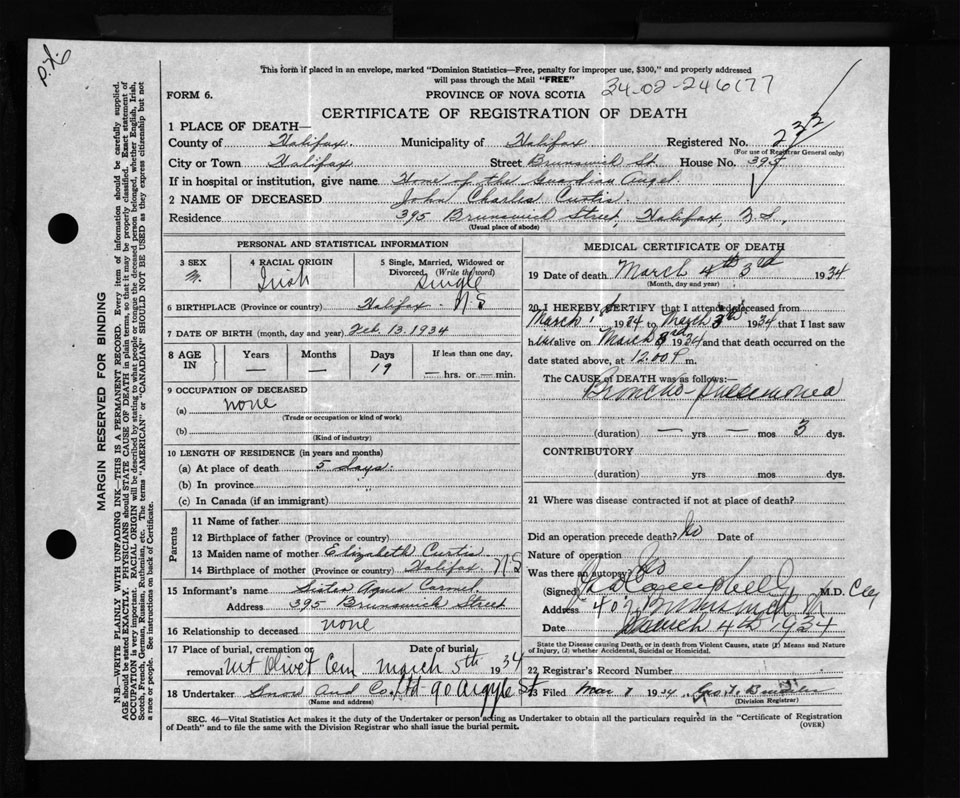 P.F.6
This form if placed in an envelope, marked "Dominion Statistics—Free, penalty for improper use, $300," and properly addressed
will pass through the Mail "FREE"
FORM 6.
PROVINCE OF NOVA SCOTIA
34-02-246177
CERTIFICATE OF REGISTRATION OF DEATH
1 PLACE OF DEATH—
County of Halifax. Municipality of Halifax Registered No. 232
(For use of Registrar General only)
City or Town Halifax Street Brunswick St. House No. 395
If in hospital or institution, give name Home of the Guardian Angel.
2 NAME OF DECEASED John Charles Curtis.
Residence 395 Brunswick Street, Halifax, N.S.,
(Usual place of abode)
PERSONAL AND STATISTICAL INFORMATION
3 SEX M. 4 RACIAL ORIGIN Irish 5 Single, Married, Widowed or Divorced, (Write the word) Single
6 BIRTHPLACE (Province or country) Halifax - N.S
7 DATE OF BIRTH (month, day and year) Feb. 13. 1934
8 AGE IN Years — Months — Days 19 If less than one day, — hrs. or — min.
9 OCCUPATION OF DECEASED
(a) none
(Trade or occupation or kind of work)
(b)
(Kind of industry)
10 LENGTH OF RESIDENCE (in years and months)
(a) At place of death 5 days.
(b) In province "
(c) In Canada (if an immigrant)
Parents
11 Name of father
12 Birthplace of father (Province or country)
13 Maiden name of mother Elizabeth Curtis
14 Birthplace of mother (Province or country) Halifax. N.S
15 Informant's name Sister Agnes
Address 395 Brunswick Street
16 Relationship to deceased none
17 Place of burial, cremation or removal Mt Olivet Cem Date of burial March 5th 1934
18 Undertaker Snow and Co. Ltd - 90 Argyle St
(Name and address)
MEDICAL CERTIFICATE OF DEATH
19 Date of death March 4th 3rd 1934
(Month, day and year)
20 I HEREBY CERTIFY that I attended deceased from
March 1st 1934 to March 3rd 1934 that I last saw
h im alive on March 3rd 1934 and that death occurred on the
date stated above, at 12.00 P. m.
The CAUSE of DEATH was as follows:—
Broncho-pneumonea
(duration) — yrs — mos 3 dys.
CONTRIBUTORY
(duration) yrs mos dys.
21 Where was disease contracted if not at place of death?
Did an operation precede death? No Date of
Nature of operation
Was there an autopsy? No
(Signed) Campbell M.D.
Address 407 Brunswick St
Date March 4th 1934
State the Disease causing Death, or in death from Violent Causes, state (1) Means and Nature
of Injury, (2) whether Accidental, Suicidal or Homicidal.
22 Registrar's Record Number
23 Filed Mar 7 1934
(Division Registrar)
SEC. 46—Vital Statistics Act makes it the duty of the Undertaker or person acting as Undertaker to obtain all the particulars required in the "Certificate of Registration
of Death" and to file the same with the Division Registrar who shall issue the burial permit.
(OVER)
MARGIN RESERVED FOR BINDING
N.B.—WRITE PLAINLY WITH UNFADING INK—THIS IS A PERMANENT RECORD. Every item of information should be carefully supplied.
AGE should be stated EXACTLY. PHYSICIANS should STATE CAUSE OF DEATH in plain terms, so that it may be properly classified. Exact statement of
OCCUPATION is very important. RACIAL ORIGIN will be described by stating to what people or tongue the deceased person belonged, whether English, Irish,
Scotch, French, German, Russian, Ruthenian, etc. The terms "AMERICAN" or "CANADIAN" SHOULD NOT BE USED as they express citizenship but not
a race or people. See instructions on back of Certificate.